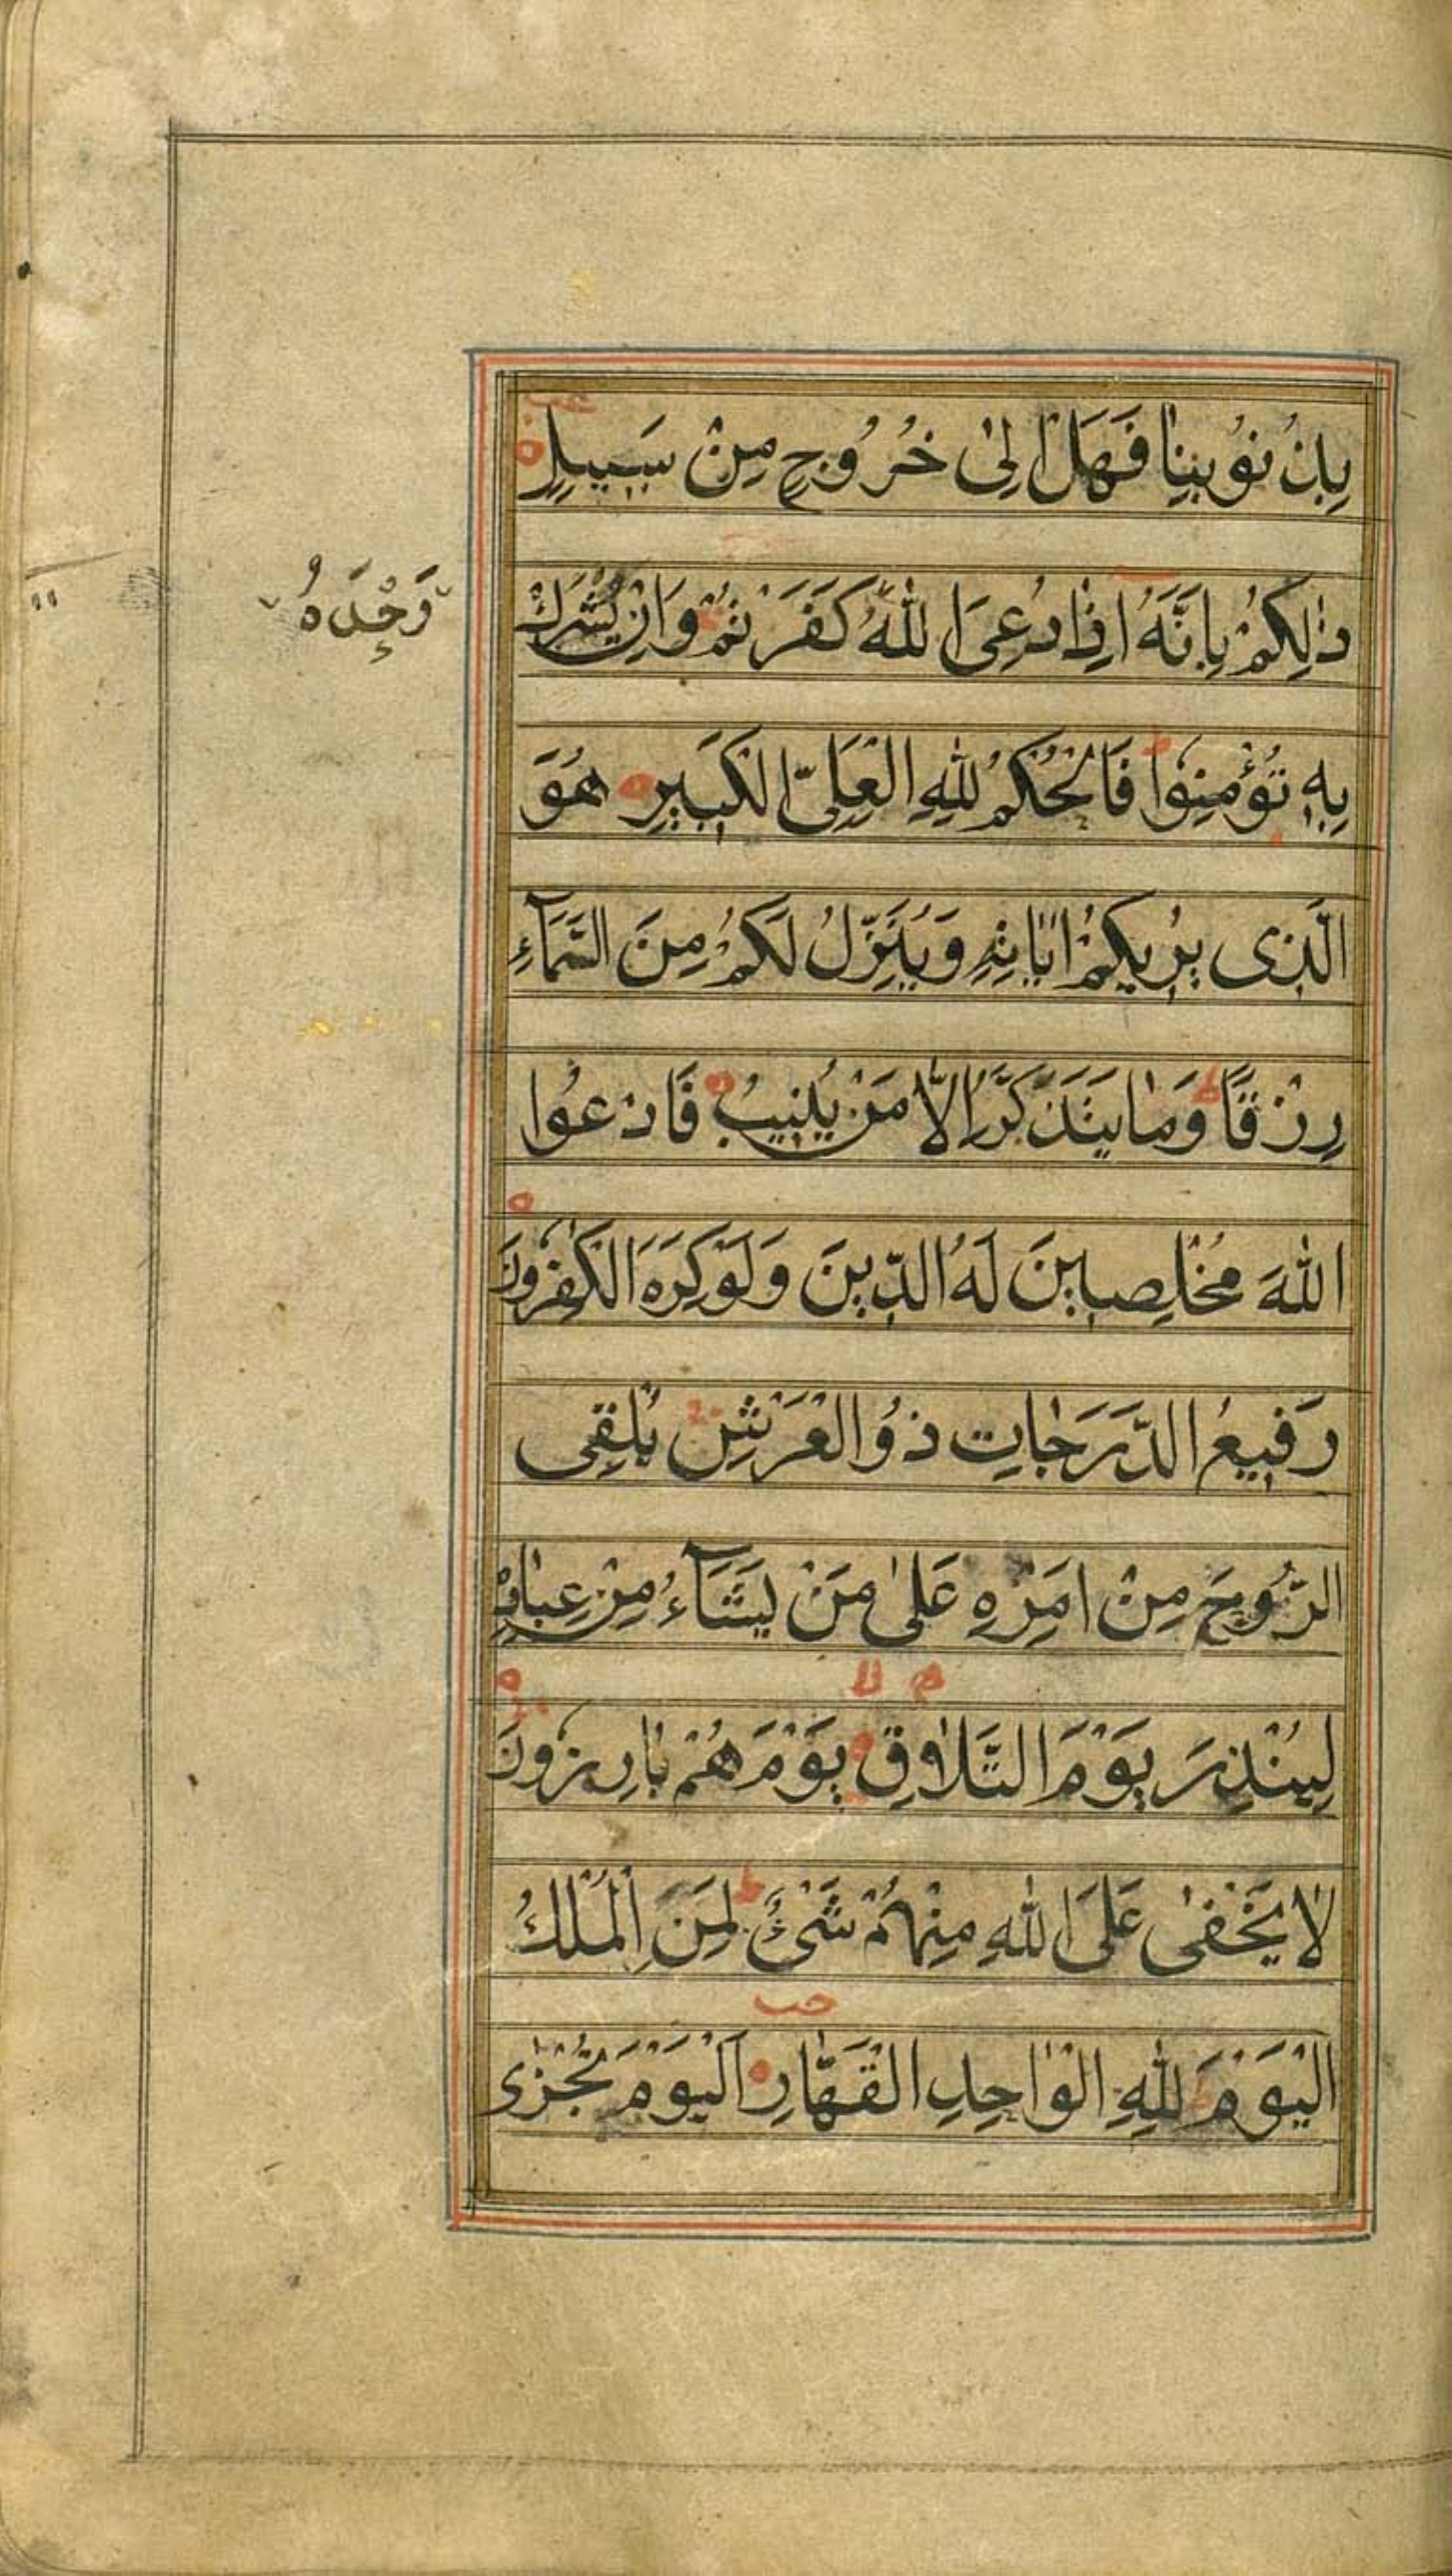 بِذُنُوبِنَا فَهَلْ اِلىٰ خُرُوجٍ مِنْ سَبِيلٍ
ذٰلِكُمْ بِاَنَّهُ اِذَا دُعِىَ اللّٰهُ كَفَرْتُمْ وَاِنْ يُشْرَكْ
وَحْدَهُ
بِهٖ تُؤْمِنُوا فَالْحُكْمُ لِلّٰهِ الْعَلِىِّ الْكَبِيرِ هُوَ
الَّذِى يُرِيكُمْ اٰيَاتِهِ وَيُنَزِّلُ لَكُمْ مِنَ السَّمَآءِ
رِزْقًا وَمَا يَتَذَكَّرُ اِلَّا مَنْ يُنِيبُ فَادْعُوا
اللّٰهَ مُخْلِصِينَ لَهُ الدِّينَ وَلَوْ كَرِهَ الْكٰفِرُونَ
رَفِيعُ الدَّرَجَاتِ ذُو الْعَرْشِ يُلْقِى
الرُّوحَ مِنْ اَمْرِهِ عَلىٰ مَنْ يَشَآءُ مِنْ عِبَادِهِ
لِيُنْذِرَ يَوْمَ التَّلَاقِ يَوْمَ هُمْ بَارِزُونَ
لَا يَخْفىٰ عَلَى اللّٰهِ مِنْهُمْ شَىْءٌ لِمَنِ الْمُلْكُ
الْيَوْمَ لِلّٰهِ الْوَاحِدِ الْقَهَّارِ اَلْيَوْمَ تُجْزٰى